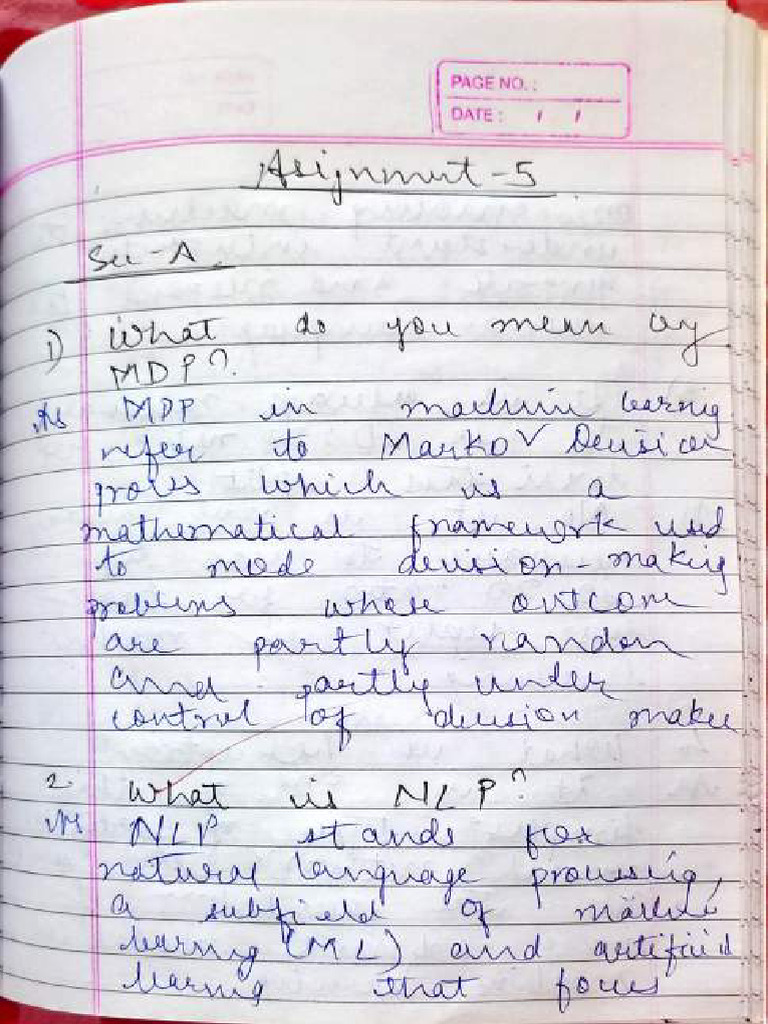 PAGE NO. :
DATE : / /
Asignment - 5
Sec - A
1) What do you mean by
MDP?
Ans MDP in machine learnig
refer to Markov Decision
proces which is a
mathematical framework used
to mode decision - making
problems whose outcome
are partly random
and partly under
control of decision maker
2. What is NLP?
Ans NLP stands for
natural language processing,
a subfield of machine
learning (ML) and artificial
learning that focus